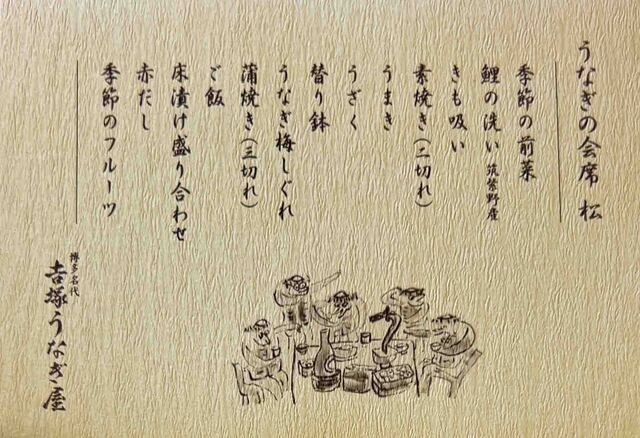 うなぎの会席 松
季節の前菜
鯉の洗い 筑紫野産
きも吸い
素焼き(二切れ)
うまき
うざく
替り鉢
うなぎ梅しぐれ
蒲焼き(三切れ)
ご飯
床漬け盛り合わせ
赤だし
季節のフルーツ
博多名代
吉塚うなぎ屋